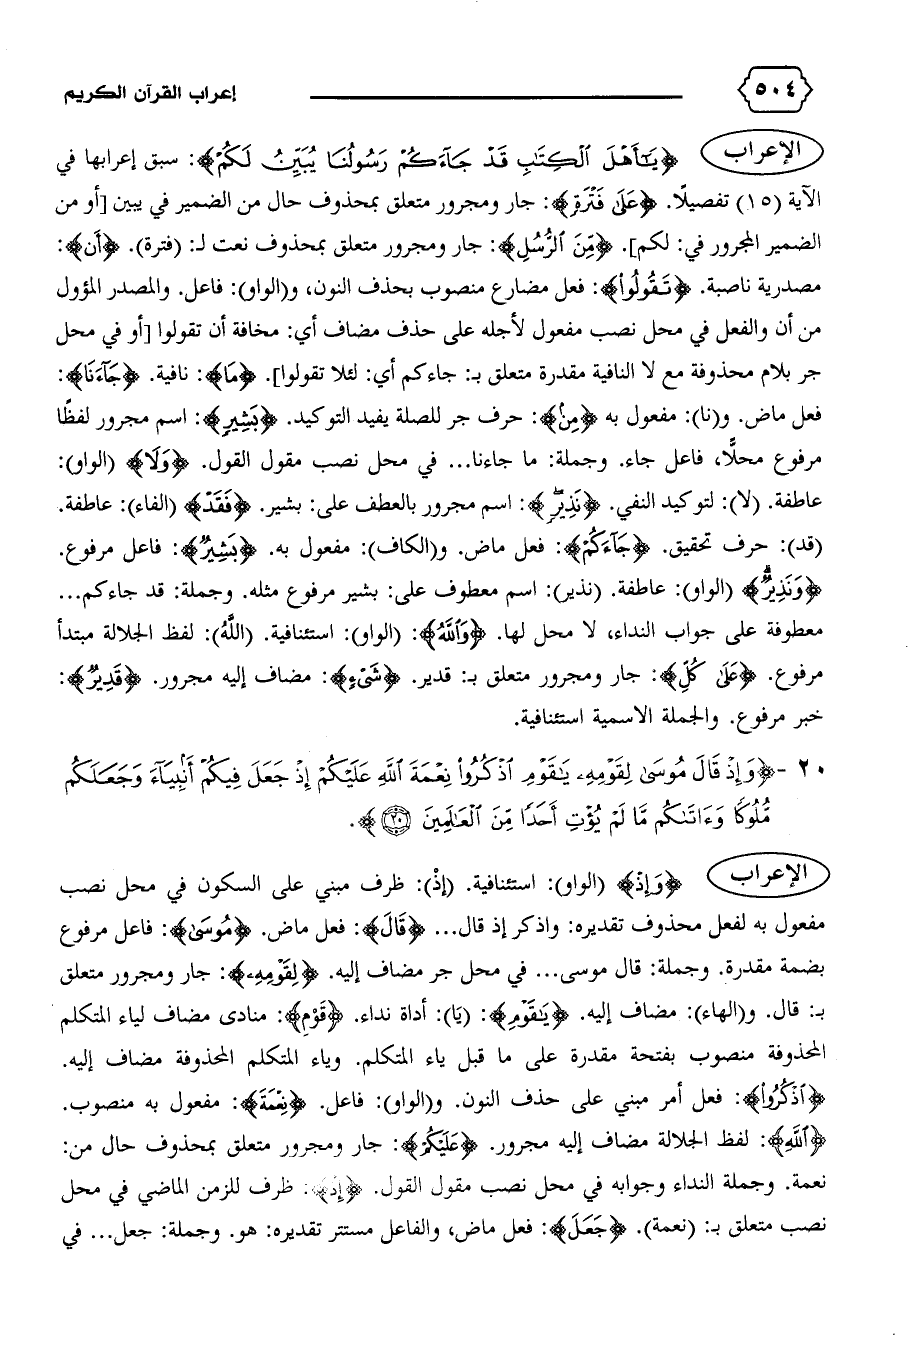 ٥٠٤ إعراب القرآن الكريم
الإعراب ﴿يَٰٓأَهْلَ ٱلْكِتَٰبِ قَدْ جَآءَكُمْ رَسُولُنَا يُبَيِّنُ لَكُمْ﴾: سبق إعرابها في
الآية (١٥) تفصيلًا. ﴿عَلَىٰ فَتْرَةٍ﴾: جار ومجرور متعلق بمحذوف حال من الضمير في يبين [أو من
الضمير المجرور في: لكم]. ﴿مِّنَ ٱلرُّسُلِ﴾: جار ومجرور متعلق بمحذوف نعت لـ: (فترة). ﴿أَن﴾:
مصدرية ناصبة. ﴿تَقُولُوا۟﴾: فعل مضارع منصوب بحذف النون، و(الواو): فاعل. والمصدر المؤول
من أن والفعل في محل نصب مفعول لأجله على حذف مضاف أي: مخافة أن تقولوا [أو في محل
جر بلام محذوفة مع لا النافية مقدرة متعلق بـ: جاءكم أي: لئلا تقولوا]. ﴿مَا﴾: نافية. ﴿جَآءَنَا﴾:
فعل ماض. و(نا): مفعول به ﴿مِنۢ﴾: حرف جر للصلة يفيد التوكيد. ﴿بَشِيرٍ﴾: اسم مجرور لفظًا
مرفوع محلًّا، فاعل جاء. وجملة: ما جاءنا... في محل نصب مقول القول. ﴿وَلَا﴾ (الواو):
عاطفة. (لا): لتوكيد النفي. ﴿نَذِيرٍۖ﴾: اسم مجرور بالعطف على: بشير. ﴿فَقَدْ﴾ (الفاء): عاطفة.
(قد): حرف تحقيق. ﴿جَآءَكُم﴾: فعل ماض. و(الكاف): مفعول به. ﴿بَشِيرٌ﴾: فاعل مرفوع.
﴿وَنَذِيرٌۗ﴾ (الواو): عاطفة. (نذير): اسم معطوف على: بشير مرفوع مثله. وجملة: قد جاءكم...
معطوفة على جواب النداء، لا محل لها. ﴿وَٱللَّهُ﴾: (الواو): استئنافية. (اللَّهُ): لفظ الجلالة مبتدأ
مرفوع. ﴿عَلَىٰ كُلِّ﴾: جار ومجرور متعلق بـ: قدير. ﴿شَىْءٍ﴾: مضاف إليه مجرور. ﴿قَدِيرٌ﴾:
خبر مرفوع. والجملة الاسمية استئنافية.
٢٠ - ﴿وَإِذْ قَالَ مُوسَىٰ لِقَوْمِهِۦ يَٰقَوْمِ ٱذْكُرُوا۟ نِعْمَةَ ٱللَّهِ عَلَيْكُمْ إِذْ جَعَلَ فِيكُمْ أَنۢبِيَآءَ وَجَعَلَكُم
مُّلُوكًا وَءَاتَىٰكُم مَّا لَمْ يُؤْتِ أَحَدًا مِّنَ ٱلْعَٰلَمِينَ ٢٠﴾.
الإعراب ﴿وَإِذْ﴾ (الواو): استئنافية. (إذْ): ظرف مبني على السكون في محل نصب
مفعول به لفعل محذوف تقديره: واذكر إذ قال... ﴿قَالَ﴾: فعل ماض. ﴿مُوسَىٰ﴾: فاعل مرفوع
بضمة مقدرة. وجملة: قال موسى... في محل جر مضاف إليه. ﴿لِقَوْمِهِۦ﴾: جار ومجرور متعلق
بـ: قال. و(الهاء): مضاف إليه. ﴿يَٰقَوْمِ﴾: (يَا): أداة نداء. ﴿قَوْمِ﴾: منادى مضاف لياء المتكلم
المحذوفة منصوب بفتحة مقدرة على ما قبل ياء المتكلم. وياء المتكلم المحذوفة مضاف إليه.
﴿ٱذْكُرُوا۟﴾: فعل أمر مبني على حذف النون. و(الواو): فاعل. ﴿نِعْمَةَ﴾: مفعول به منصوب.
﴿ٱللَّهِ﴾: لفظ الجلالة مضاف إليه مجرور. ﴿عَلَيْكُمْ﴾: جار ومجرور متعلق بمحذوف حال من:
نعمة. وجملة النداء وجوابه في محل نصب مقول القول. ﴿إِذْ﴾: ظرف للزمن الماضي في محل
نصب متعلق بـ: (نعمة). ﴿جَعَلَ﴾: فعل ماض، والفاعل مستتر تقديره: هو. وجملة: جعل... في